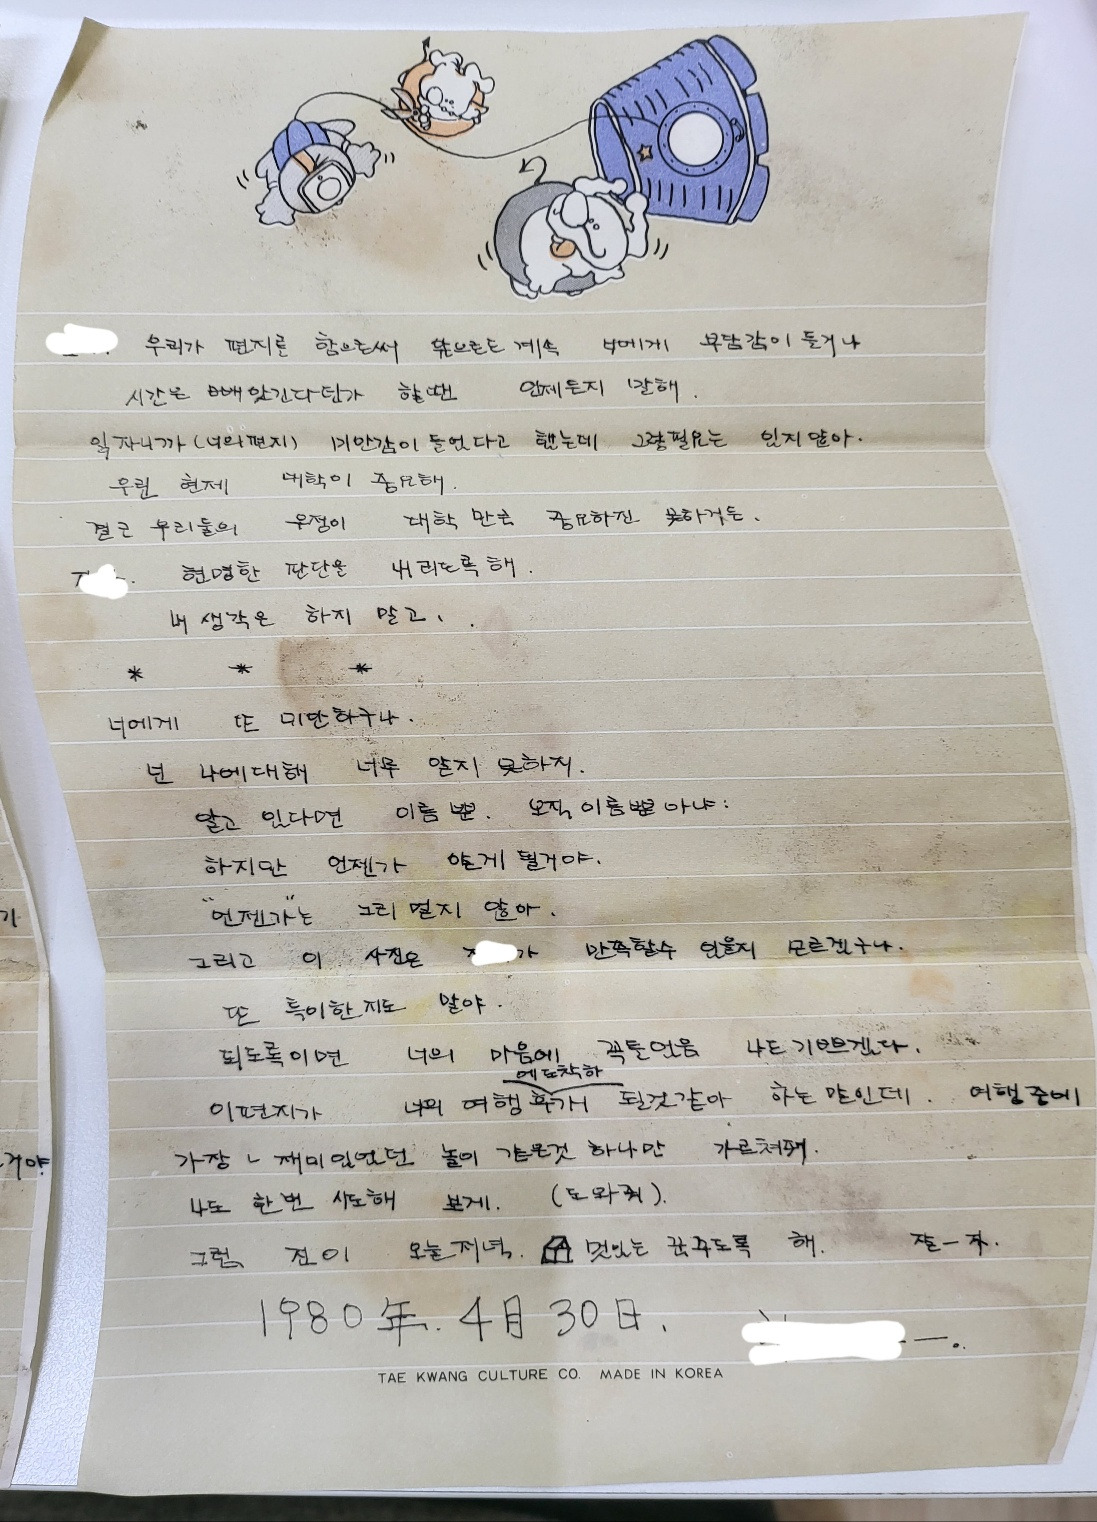 우리가 편지를 함으로써 앞으로도 계속 너에게 부담감이 들거나
시간을 빼앗긴다던가 할땐 언제든지 말해.
읽자니까 (너의 편지) 미안감이 들었다고 했는데 그럴필요는 있지않아.
우린 현재 대학이 중요해.
결코 우리들의 우정이 대학 만큼 중요하진 못하거든.
현명한 판단을 내리도록 해.
내 생각은 하지 말고.
* * *
너에게 또 미안하구나.
넌 나에대해 너무 알지 못하지.
알고 있다면 이름뿐. 오직 이름뿐아냐:
하지만 언젠가 알게 될거야.
"언젠가"는 그리 멀지 않아.
그리고 이 사진은 가 만족할수 있을지 모르겠구나.
또 특이한지도 말야.
되도록이면 너의 마음에 꼭들었음 나도 기쁘겠다.
에 도착하
이편지가 너의 여행 될것같아 하는 말인데. 여행중에
가장 재미있었던 놀이 같은것 하나만 가르쳐줘.
나도 한번 시도해 보게. (도와줘).
그럼, 오늘저녁. 멋있는 꿈꾸도록 해. 잘-자.
1980年. 4月 30日.
TAE KWANG CULTURE CO. MADE IN KOREA
기
거야